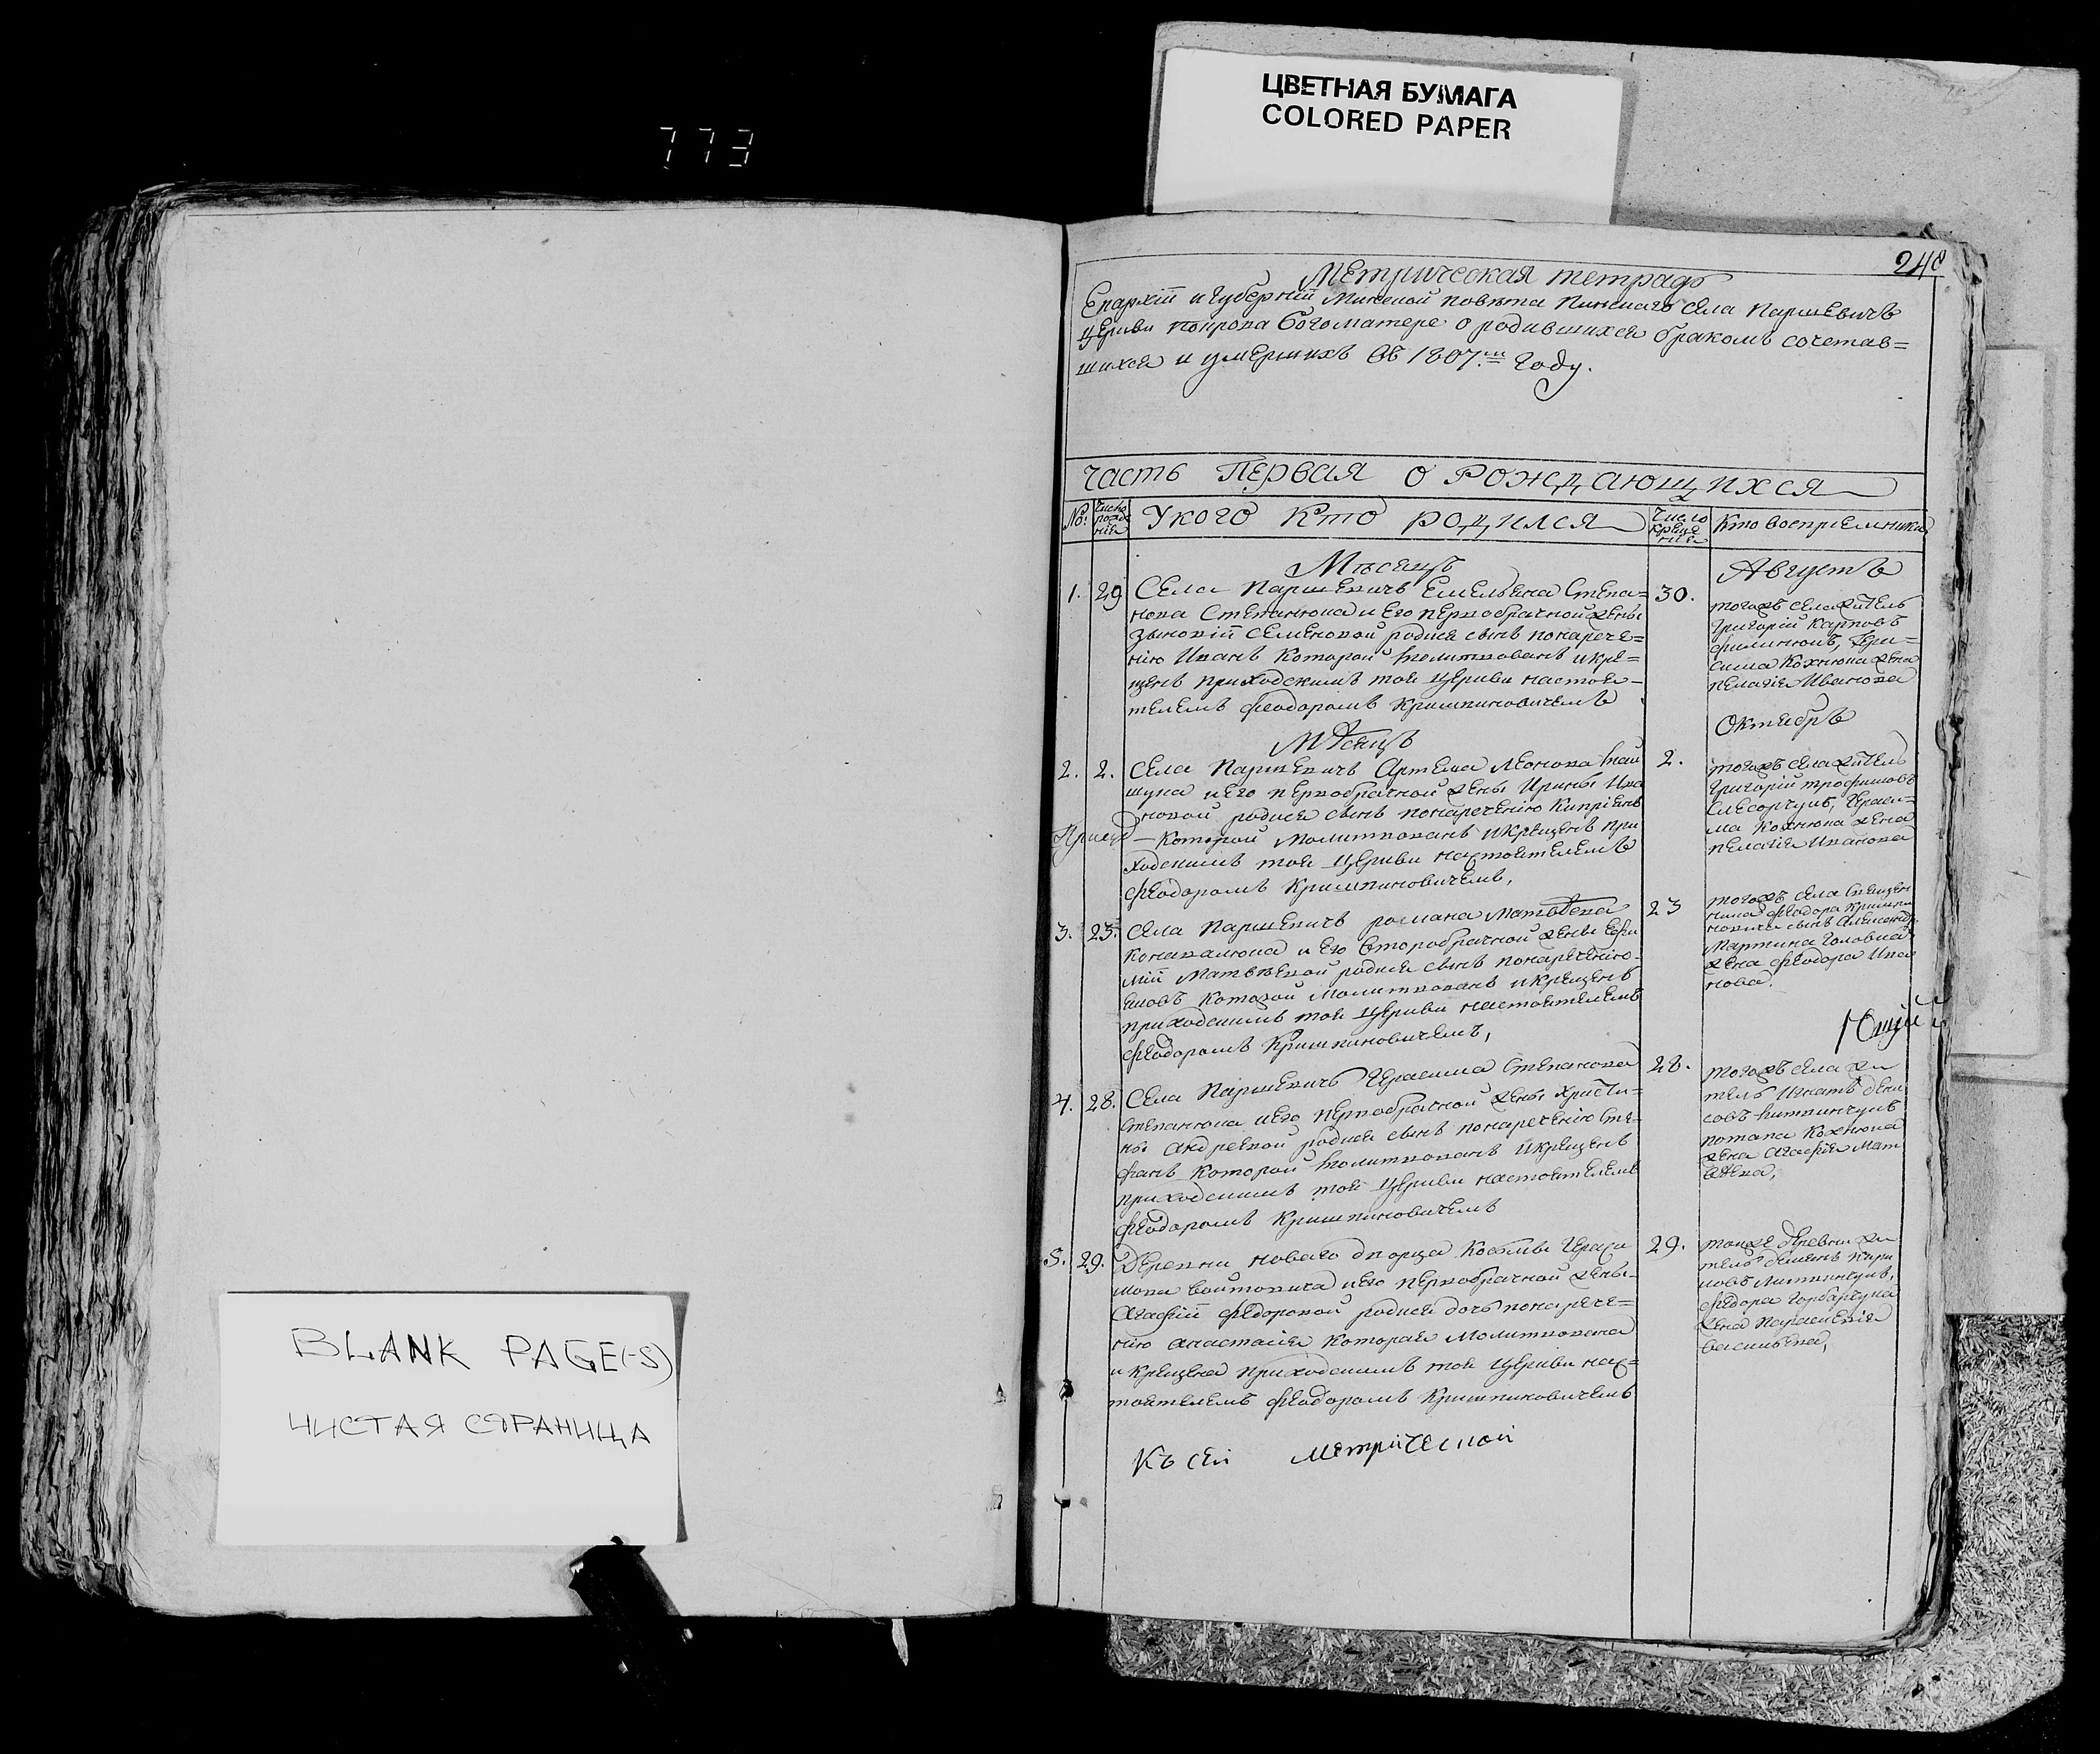 773
ЦВЕТНАЯ БУМАГА
COLORED PAPER
248
Метрическая тетрадь
Епархіи и Губерніи Минской повѣта Пинскаго села Паршевичъ
церкви покрова Богоматере о родившихся бракомъ сочетав=
шихся и умершихъ въ 1807.м Году.
часть Первая о Рождающихся
№: число рожде нія
У кого Кто родился
Число креще нія
Кто восприемники
Мѣсяцъ
Августъ
1. 29 Села Паршевичъ Емельяна Степа=
нова Степанюка и Его первобрачной жены
Зыновіи Семеновой родися сынъ понарече=
нію Иванъ Которой молитвованъ и кре=
щенъ приходскимъ той церкви настоя-
телемъ Феодоромъ Кришпиновичемъ
30. тогожъ села житель
Григорій Карповъ
жена
пелагія Иванова
Мѣсяцъ
Октябръ
2. 2. Села Паршевичъ Артема Леонова
и Его первобрачной жены Ирины Ива
новой родися сынъ понареченію Кипріянъ
Которой Молитвованъ и Крещенъ при
ходскимъ той Церкви настоятелемъ
Феодоромъ Кришпиновичемъ,
2. тогожъ села житель
Григорій трофимовъ
Гераси=
ма Кохнюка жена
пелагія Иванова
3. 23. Села Паршевичъ романа Матвѣева
Коновалюка и Его второбрачной жены Евфи
міи Матвѣевой родися сынъ понареченію
Іаковъ Которой Молитвованъ и Крещенъ
приходскимъ той Церкви настоятелемъ
Феодоромъ Кришпиновичемъ,
23 тогожъ села священ
ника Феодора Кришпи
новича сынъ Александръ
Мартина Головка
жена Феодора Ива
нова.
4. 28. Села Паршевичъ Герасима Степанова
Степанюка и Его первобрачной жены Христи-
ны Андреевой родися сынъ понареченію Сте-
фанъ Которой молитвованъ и Крещенъ
приходскимъ той Церкви настоятелемъ
Феодоромъ Кришпиновичемъ
28. тогожъ села жи
тель Игнатъ Дени
совъ
потапа Кохнюка
жена Агафія Мат
вѣева,
5. 29. Деревни новаго дворца Косьмы Гераси
мова Войтовича и Его первобрачной жены
Агафіи Федоровой родися дочь понарече=
нію анастасія Которая Молитвована
и Крещена Приходскимъ той Церкви нас=
тоятелемъ Феодоромъ Кришпиновичемъ
29. тоежъ деревни жи
тель
Федора Горбачука
жена Параскевія
васильева,
Къ сей метрической
BLANK PAGE(-S)
ЧИСТАЯ СТРАНИЦА